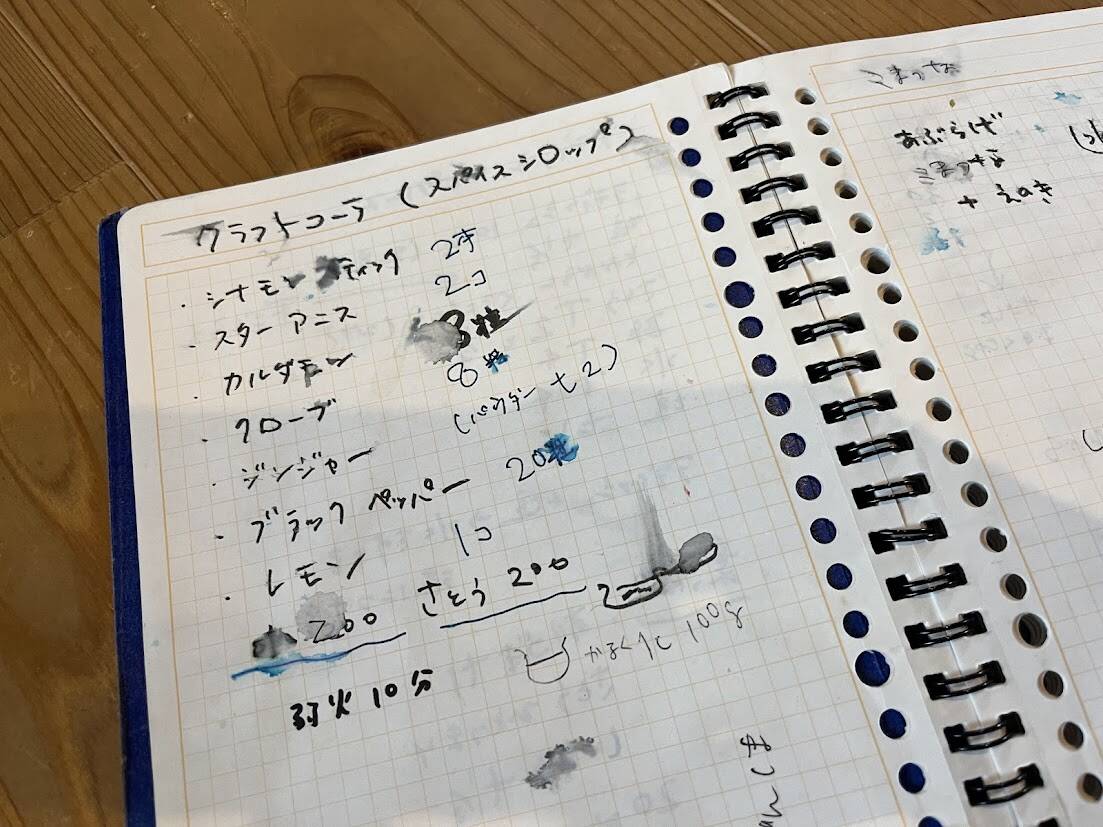 クラフトコーラ (スパイスシロップ)
・シナモンスティック 2本
・スターアニス 2コ
・カルダモン 8粒
・クローブ 8粒
・ジンジャー (パウダー 2)
・ブラックペッパー 20粒
・レモン 1コ
水 200 さとう 200
かるく1 100g
弱火10分
こまつな
あぶらげ
こまつな
+ えのき